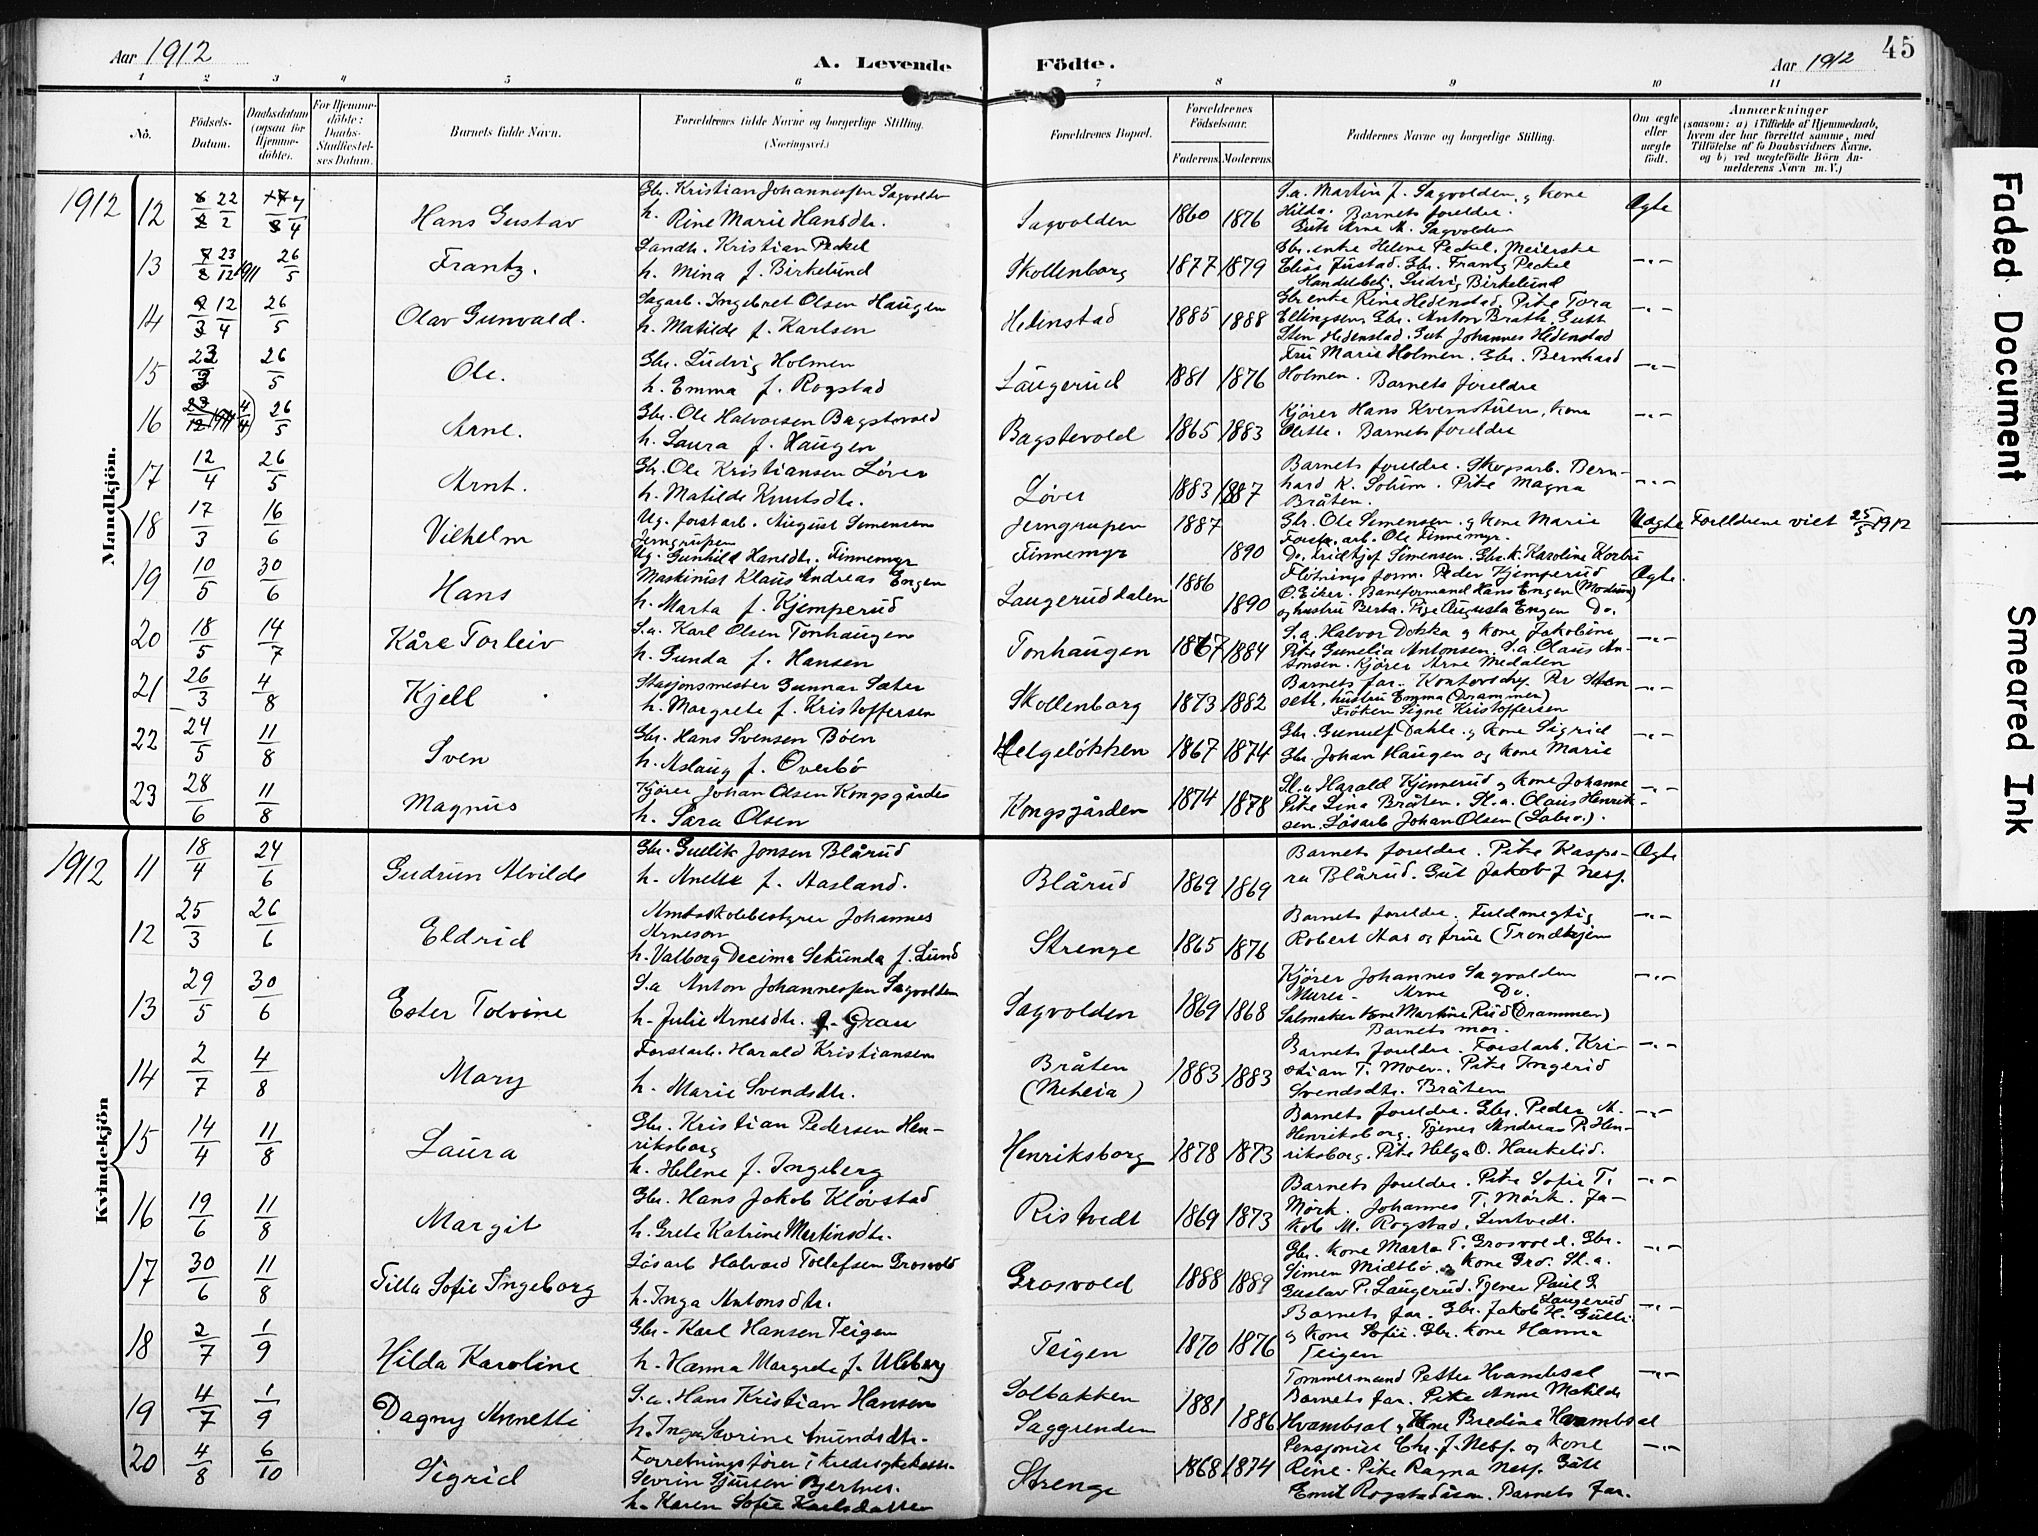 Aar 1912
A. Levende Födte.
Aar 1912
45
1 2 3 4 5 6 7 8 9 10 11
No.
Födsels-Datum.
Daabsdatum (ogsaa for Hjemme-döbte).
For Hjemme-döbte: Daabs-Stadfæstel-ses Datum.
Barnets fulde Navn.
Forældrenes fulde Navne og borgerlige Stilling.
(Næringsvei.)
Forældrenes Bopæl.
Forældrenes Födselsaar.
Faderens. Moderens.
Faddernes Navne og borgerlige Stilling.
Om ægte eller uægte födt.
Anmærkninger
(saasom: a) i Tilfælde af Hjemmedaab,
hvem der har forrettet samme, med
Tilföielse af to Daabsvidners Navne.
og b) ved uægtefödte Börn An-
melderens Navn m. V.)
Mandkjön.
1912
12 22/2 7/4 Hans Gustav
Gbr. Kristian Johannessen Sagvolden
h. Rine Marie Hansdtr.
Sagvolden 1860 1876
S.a. Martin J. Sagvolden og kone
Hilda. Barnets foreldre.
Gut Arne M. Sagvolden
Ægte
13 23/12 1911 26/5 Frantz.
Landh. Kristian Peckel
h. Mina f. Birkelund
Skollenborg 1877 1879
Gbr. enke Helene Peckel. Meierske
Elise Fustad. Gbr. Frantz Peckel
Handelsbetj. Ludvig Birkelund
-"-
14 12/4 26/5 Olav Gunvald.
Sagarb. Ingebret Olsen Haugen
h. Matilde f. Karlsen
Hedenstad 1885 1888
Gbr enke Rine Hedenstad. Pike Tora
Ellingsen. Gbr. Anton Bråth. Gutt
Sten Hedenstad. Gut Johannes Hedenstad
-"-
15 23/3 26/5 Ole.
Gbr. Ludvig Holmen
h. Emma f. Rogstad
Laugerud 1881 1876
Fru Marie Holmen. Gbr. Bernhard
Holmen. Barnets foreldre
-"-
16 23/12 1911 (4/4) 26/5 Arne.
Gbr. Ole Halvorsen Bagstevold
h. Laura f. Haugen
Bagstevold 1865 1883
Kjører Hans Kvernstuen, kone
Barnets foreldre
-"-
17 12/4 26/5 Arnt.
Gbr. Ole Kristiansen Løver
h. Matilde Knutsdtr.
Løver 1883 1887
Barnets foreldre. Skogsarb. Bern-
hard K. Solum. Pike Magna
Bråten.
-"-
18 17/3 16/6 Vilhelm
Ug. forstarb. August Simensen
Jerngrupen
Ug. Gunhild Hansdtr. Finnemyr
Jerngrupen 1887
Finnemyr 1890
Gbr. Ole Simensen og kone Marie
Forstarb. Ole Finnemyr.
Do. Fridtjof Simensen. Gbr. k. Karoline
Uægte
Forelldrene viet 25/5 1912
19 10/5 30/6 Hans
Maskinist Klaus Andreas Engen
h. Marta f. Kjemperud
Laugeruddalen 1886 1890
Fløtningsform. Peder Kjemperud
Ø. Eiker. Baneformand Hans Engen (Modum)
og hustru Berta. Pige Augusta Engen Do.
Ægte.
20 18/5 14/7 Kåre Torleiv
S.a. Karl Olsen Tonhaugen
h. Gunda f. Hansen
Tonhaugen 1867 1884
S.a. Halvor Dokka og kone Jakobine
Pike Gunelia Antonsen. S.a. Olaus An-
tonsen. Kjører Arne Medalen
-"-
21 26/3 4/8 Kjell
Stasjonsmester Gunnar Sæter
h. Margrete f. Kristoffersen
Skollenborg 1873 1882
Barnets far. Kontorchef. Per
seth, hustru Emma (Drammen)
Frøken Signe Kristoffersen
-"-
22 24/5 11/8 Sven
Gbr. Hans Svensen Bøen
h. Aslaug f. Overbø
Helgeløkken 1867 1874
Gbr. Gunulf Dahle og kone Sigrid
Gbr. Johan Haugen og kone Marie
-"-
23 28/6 11/8 Magnus
Kjører Johan Olsen Kongsgården
h. Sara Olsen
Kongsgården 1874 1878
Sl.a. Harald Kjennerud og kone Johanne
Pike Lina Bråten. Sl.a. Olaus Henrik-
sen. Løsarb Johan Olsen (Labro).
-"-
Kvindekjön
1912
11 18/4 24/6 Gudrun Alvilde
Gbr. Gullik Jonsen Blårud
h. Anette f. Aasland.
Blårud 1869 1869
Barnets foreldre. Pike Kaspa-
ra Blårud. Gut Jakob J Nesp.
Ægte
12 25/3 26/6 Eldrid
Amtsskolebestyrer Johannes
Arneson
h. Valborg Decima Sekunda f. Lund
Strenge 1865 1876
Barnets foreldre. Fuldmegtig
Robert Aas og frue (Trondhjem
-"-
13 29/5 30/6 Ester Tolvine
S.a Anton Johannessen Sagvolden
h. Julie Arnesdtr. f. Grau
Sagvolden 1869 1868
Kjører Johannes Sagvolden
Murer- Arne Do.
Salmaker kone Martine Rud (Drammen)
Barnets mor.
-"-
14 2/7 4/8 Mary
Forstarb. Harald Kristiansen
h. Marie Svendsdtr.
Bråten
(Meheia) 1883 1883
Barnets foreldre. Forstarb. Kri-
stian T. Moen. Pike Ingerid
Svendsdtr. Bråten
-"-
15 14/4 11/8 Laura
Gbr. Kristian Pedersen Hen-
riksborg
h. Helene f. Ingeberg
Henriksborg 1878 1873
Barnets foreldre. Gbr. Peder A.
Henriksborg. Tjener Andreas P. Hen-
riksborg. Pike Helga O. Haukelid.
-"-
16 19/6 11/8 Margit
Gbr. Hans Jakob Kløvstad
h. Grete Katrine Martinsdtr.
Ristvedt 1869 1873
Barnets foreldre. Pike Sofie T.
Mørk. Johannes T. Mørk. Ja-
kob M. Rogstad, Lintvedt.
-"-
17 30/6 11/8 Tilla Sofie Ingeborg
Løsarb Halvord Tollefsen Grosvold
h. Inga Antonsdtr.
Grosvold 1888 1889
Gbr. kone Marta T. Grosvold. Gbr.
Simen Midtbø og kone Gro. Sl.a.
Gustav P. Laugerud. Tjener Paul G
Laugerud
-"-
18 2/7 1/9 Hilda Karoline
Gbr. Karl Hansen Teigen
h. Hanna Margrete f. Ulsberg
Teigen 1870 1876
Barnets far. Gbr. Jakob H. Gulli
og kone Sofie. Gbr. kone Hanna
Teigen
-"-
19 4/7 1/9 Dagny Annetti
S.a. Hans Kristian Hansen
h. Inga Severine Amundsdtr.
Solbakken
Saggrenden 1881 1886
Tømmermand Petter Hvambsal
Barnets far. Pike Anne Matilde
Hvambsal og Kone Bredine Hvambsal
-"-
20 4/8 6/10 Sigrid
Forretningsfører i Kredsykekasse
Severin Bjertnes.
h. Karen Sofie Karlsdatter
Strenge 1868 1874
Pensjonist Chr. J. Nesp. og kone
Rine. Pike Ragna Nesp. Gut
Emil Rogstadåsen. Barnets far.
-"-
Faded Document
Smeared Ink